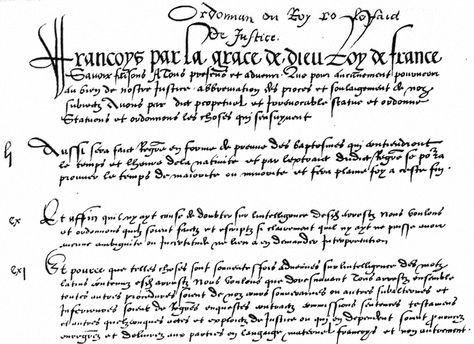 Ordonnan du Roy
de Justice.
Francoys par la grace de dieu Roy de france
Savoir faisons A tous presens et advenir Que pour aucunement pourveoir
au bien de nostre Justice abbreviation des proces et soulagement de noz
subiectz Avons par edict perpetuel et Irrevocable statue et ordonne
Statuons et ordonnons les choses qui sensuyvent
lj Aussi sera faict Regre en forme de preuve des baptesmes qui contiendront
le temps et lheure de la nativite et par lextraict dudict Regre se porra
prouver le temps de maiorite ou minorite et fera plaine foy a ceste fin.
cx Et affin quil ny ayt cause de doubter sur lintelligence desdictz arrestz Nous voulons
et ordonnons quilz soient faictz et escriptz si clairement quil ny ayt ne puisse avoir
aucune ambiguite ou Incertitude ne lieu a en demander Interpretation
cxj Et pource que telles choses sont souventesfois advenues sur lintelligence des motz
latins contenuz esdictz arrestz Nous voulons que doresnavant Tous arrestz ensemble
toutes autres procedures soient de noz cours souveraines ou autres subalternes et
Inferieures soient de Regres enquestes contractz commissions sentences testamens
et autres quelzconques actes et exploictz de Justice ou qui en dependent soient prononcez
enregrez et delivrez aux parties en langage maternel francoys et non autrement.